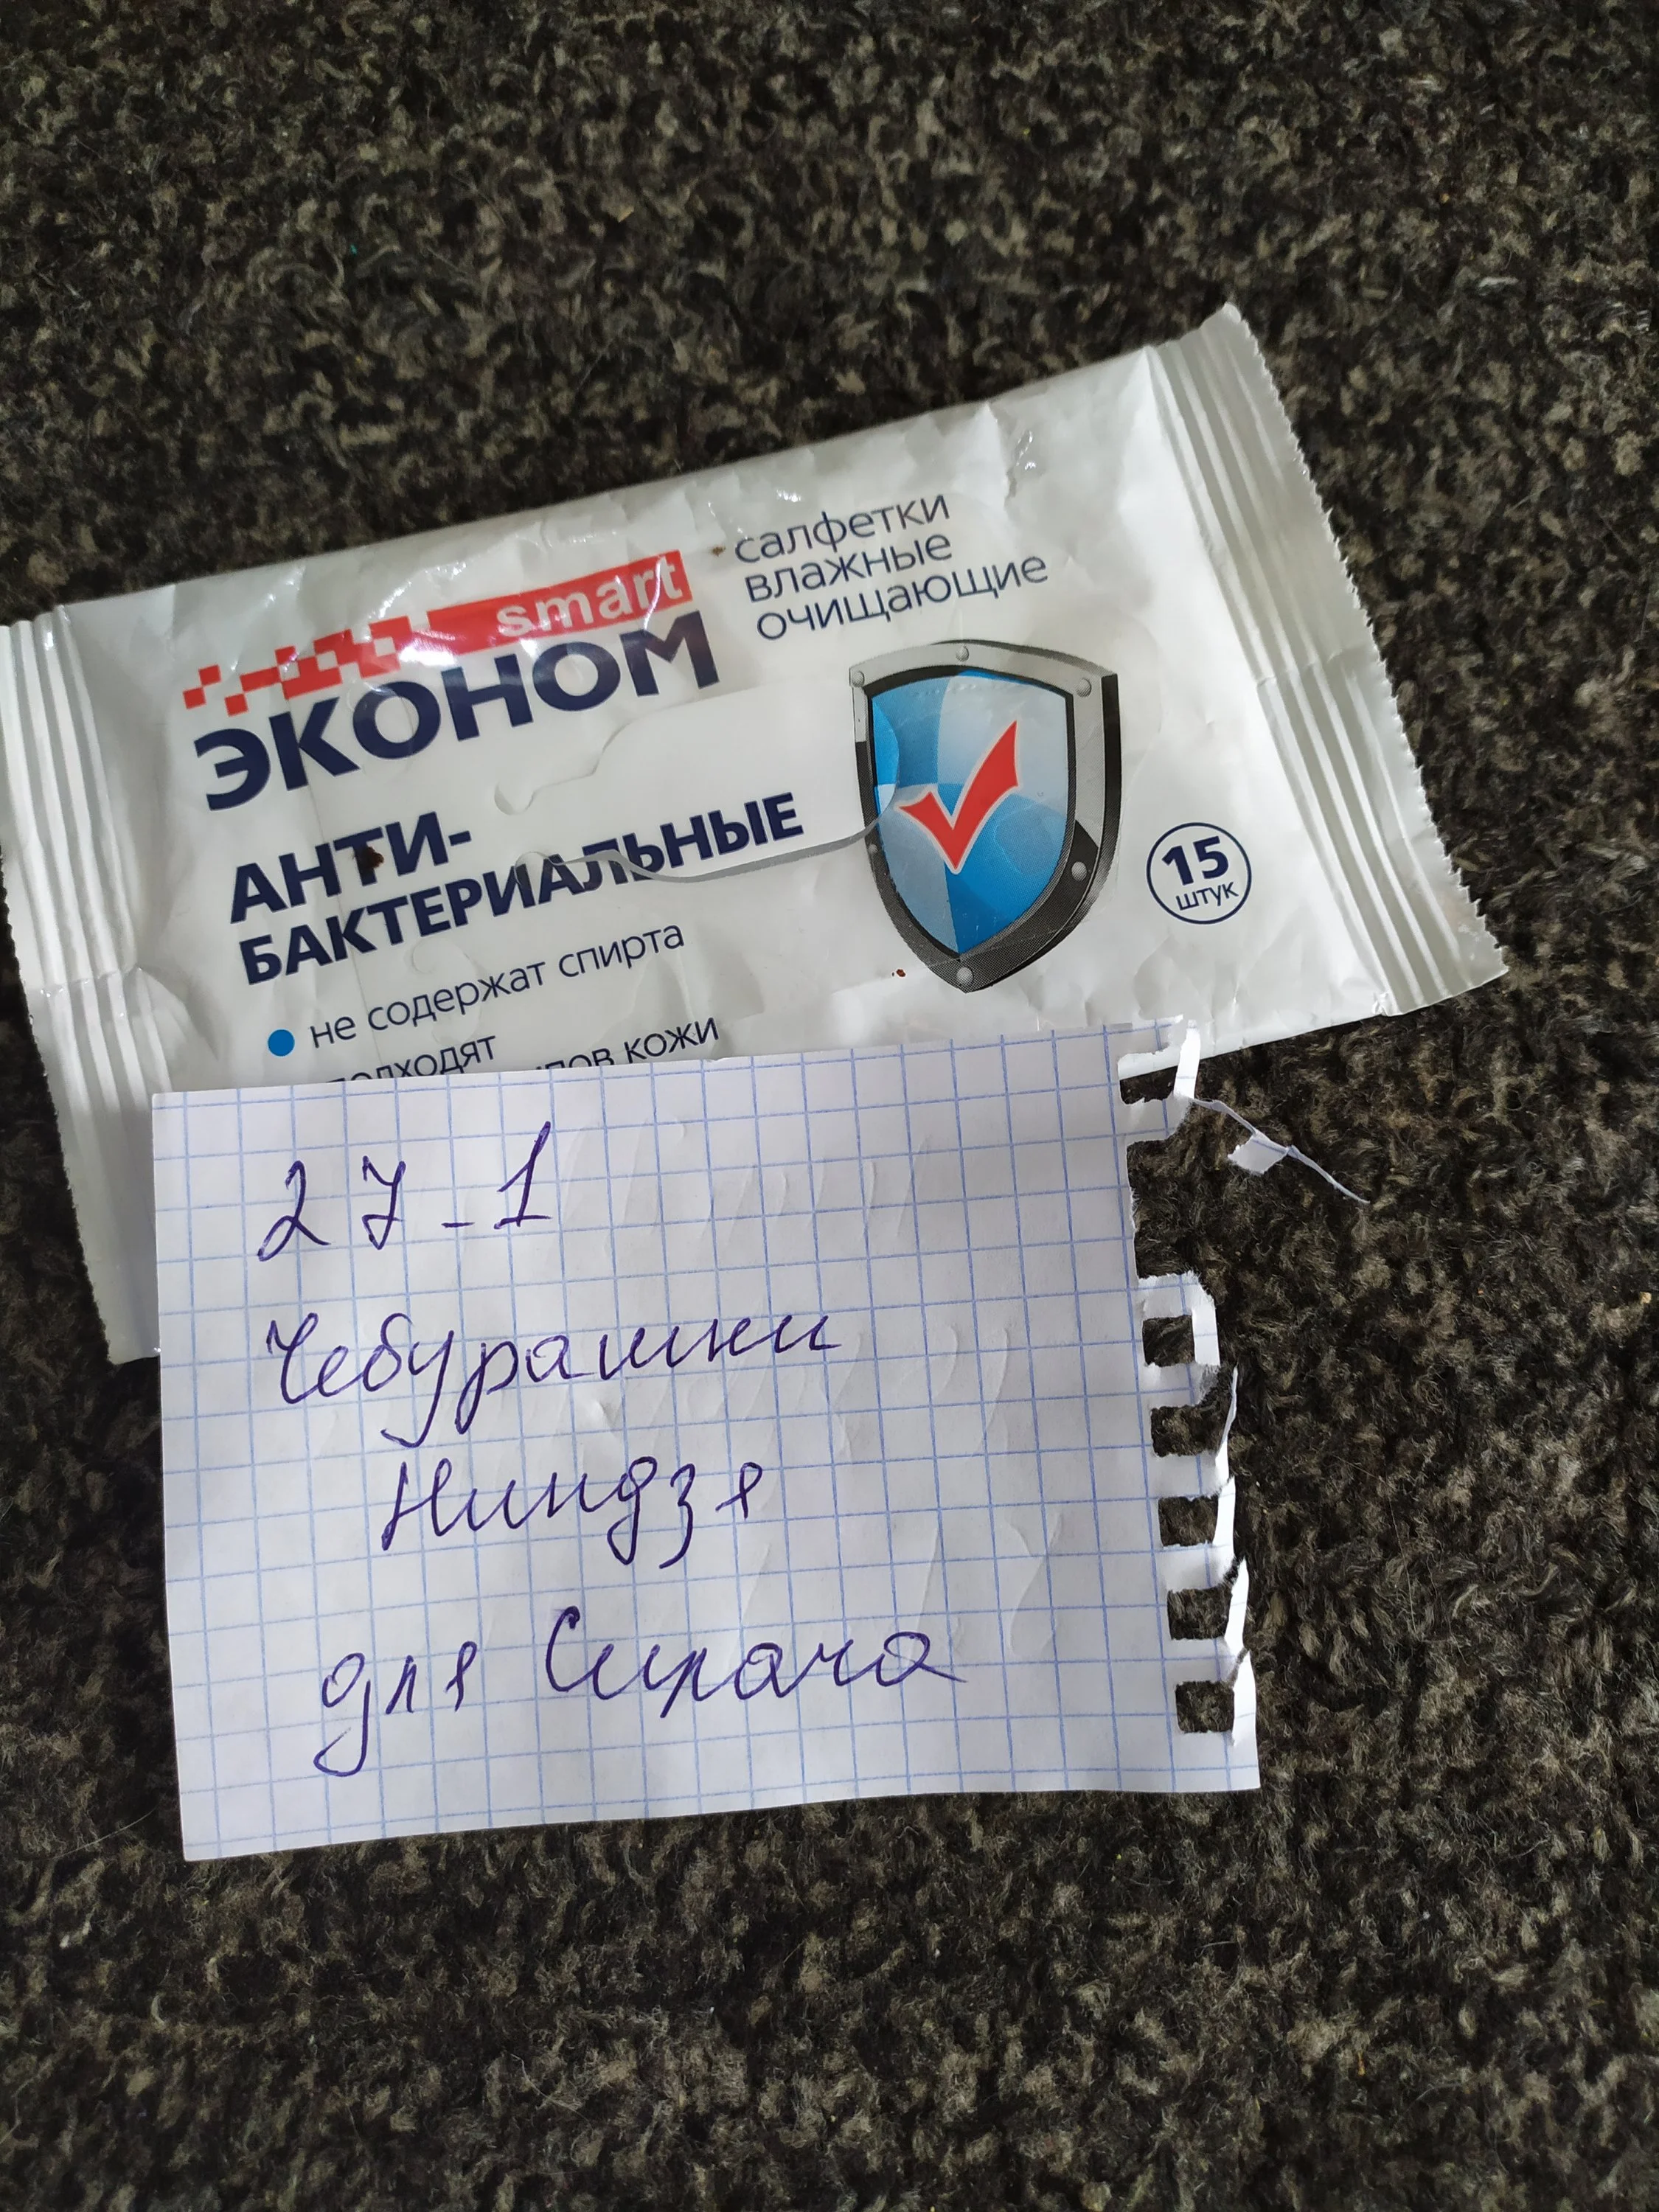 smart
ЭКОНОМ
салфетки
влажные
очищающие
АНТИ-
БАКТЕРИАЛЬНЫЕ
15
штук
не содержат спирта
подходят
кожи
27-1
Чебурашки
Ниндзя
для Сирача